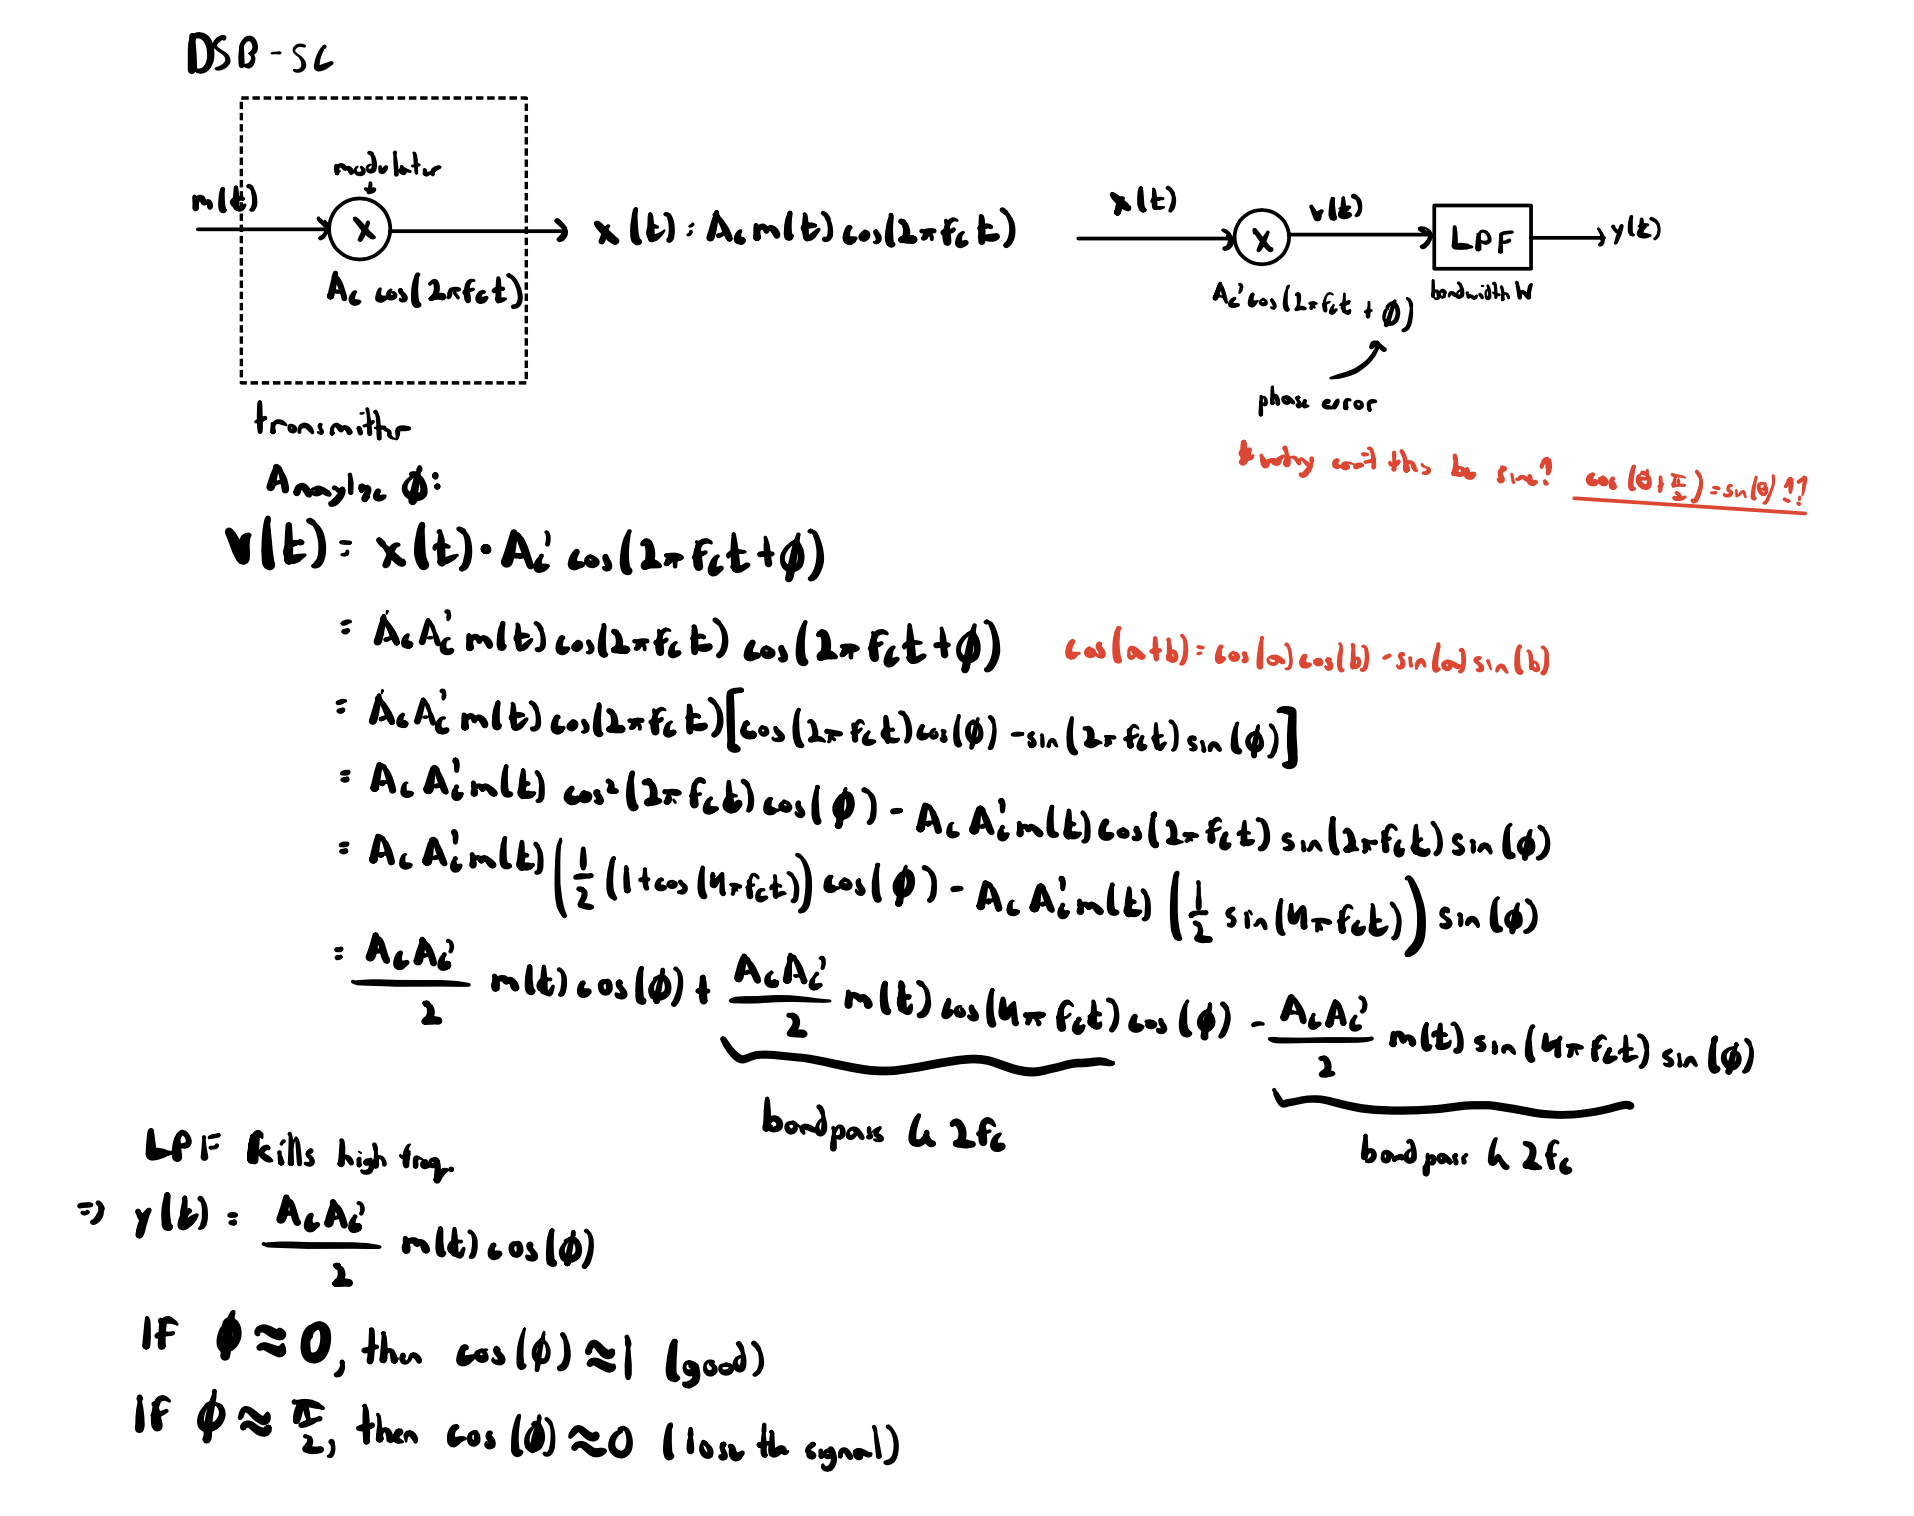 DSB-SC
modulator
m(t)
X
A_c cos(2πf_c t)
x(t) = A_c m(t) cos(2πf_c t)
transmitter
x(t)
X
v(t)
LPF
y(t)
A_c' cos(2πf_c t + ϕ)
bandwidth W
phase error
cos(θ+π/2) = sin(θ)??
this be sine?
Anaylze ϕ:
v(t) = x(t) · A_c' cos(2πf_c t + ϕ)
= A_c A_c' m(t) cos(2πf_c t) cos(2πf_c t + ϕ)
cos(a+b) = cos(a)cos(b) - sin(a)sin(b)
= A_c A_c' m(t) cos(2πf_c t)[cos(2πf_c t)cos(ϕ) - sin(2πf_c t) sin(ϕ)]
= A_c A_c' m(t) cos²(2πf_c t) cos(ϕ) - A_c A_c' m(t) cos(2πf_c t) sin(2πf_c t) sin(ϕ)
= A_c A_c' m(t) (1/2 (1+cos(4πf_c t)) cos(ϕ) - A_c A_c' m(t) (1/2 sin(4πf_c t)) sin(ϕ)
= A_c A_c'/2 m(t) cos(ϕ) + A_c A_c'/2 m(t) cos(4πf_c t) cos(ϕ) - A_c A_c'/2 m(t) sin(4πf_c t) sin(ϕ)
bandpass 2f_c
bandpass 2f_c
LPF kills high freq.
⇒ y(t) = A_c A_c'/2 m(t) cos(ϕ)
IF ϕ ≈ 0, then cos(ϕ) ≈ 1 (good)
IF ϕ ≈ π/2, then cos(ϕ) ≈ 0 (lose the signal)